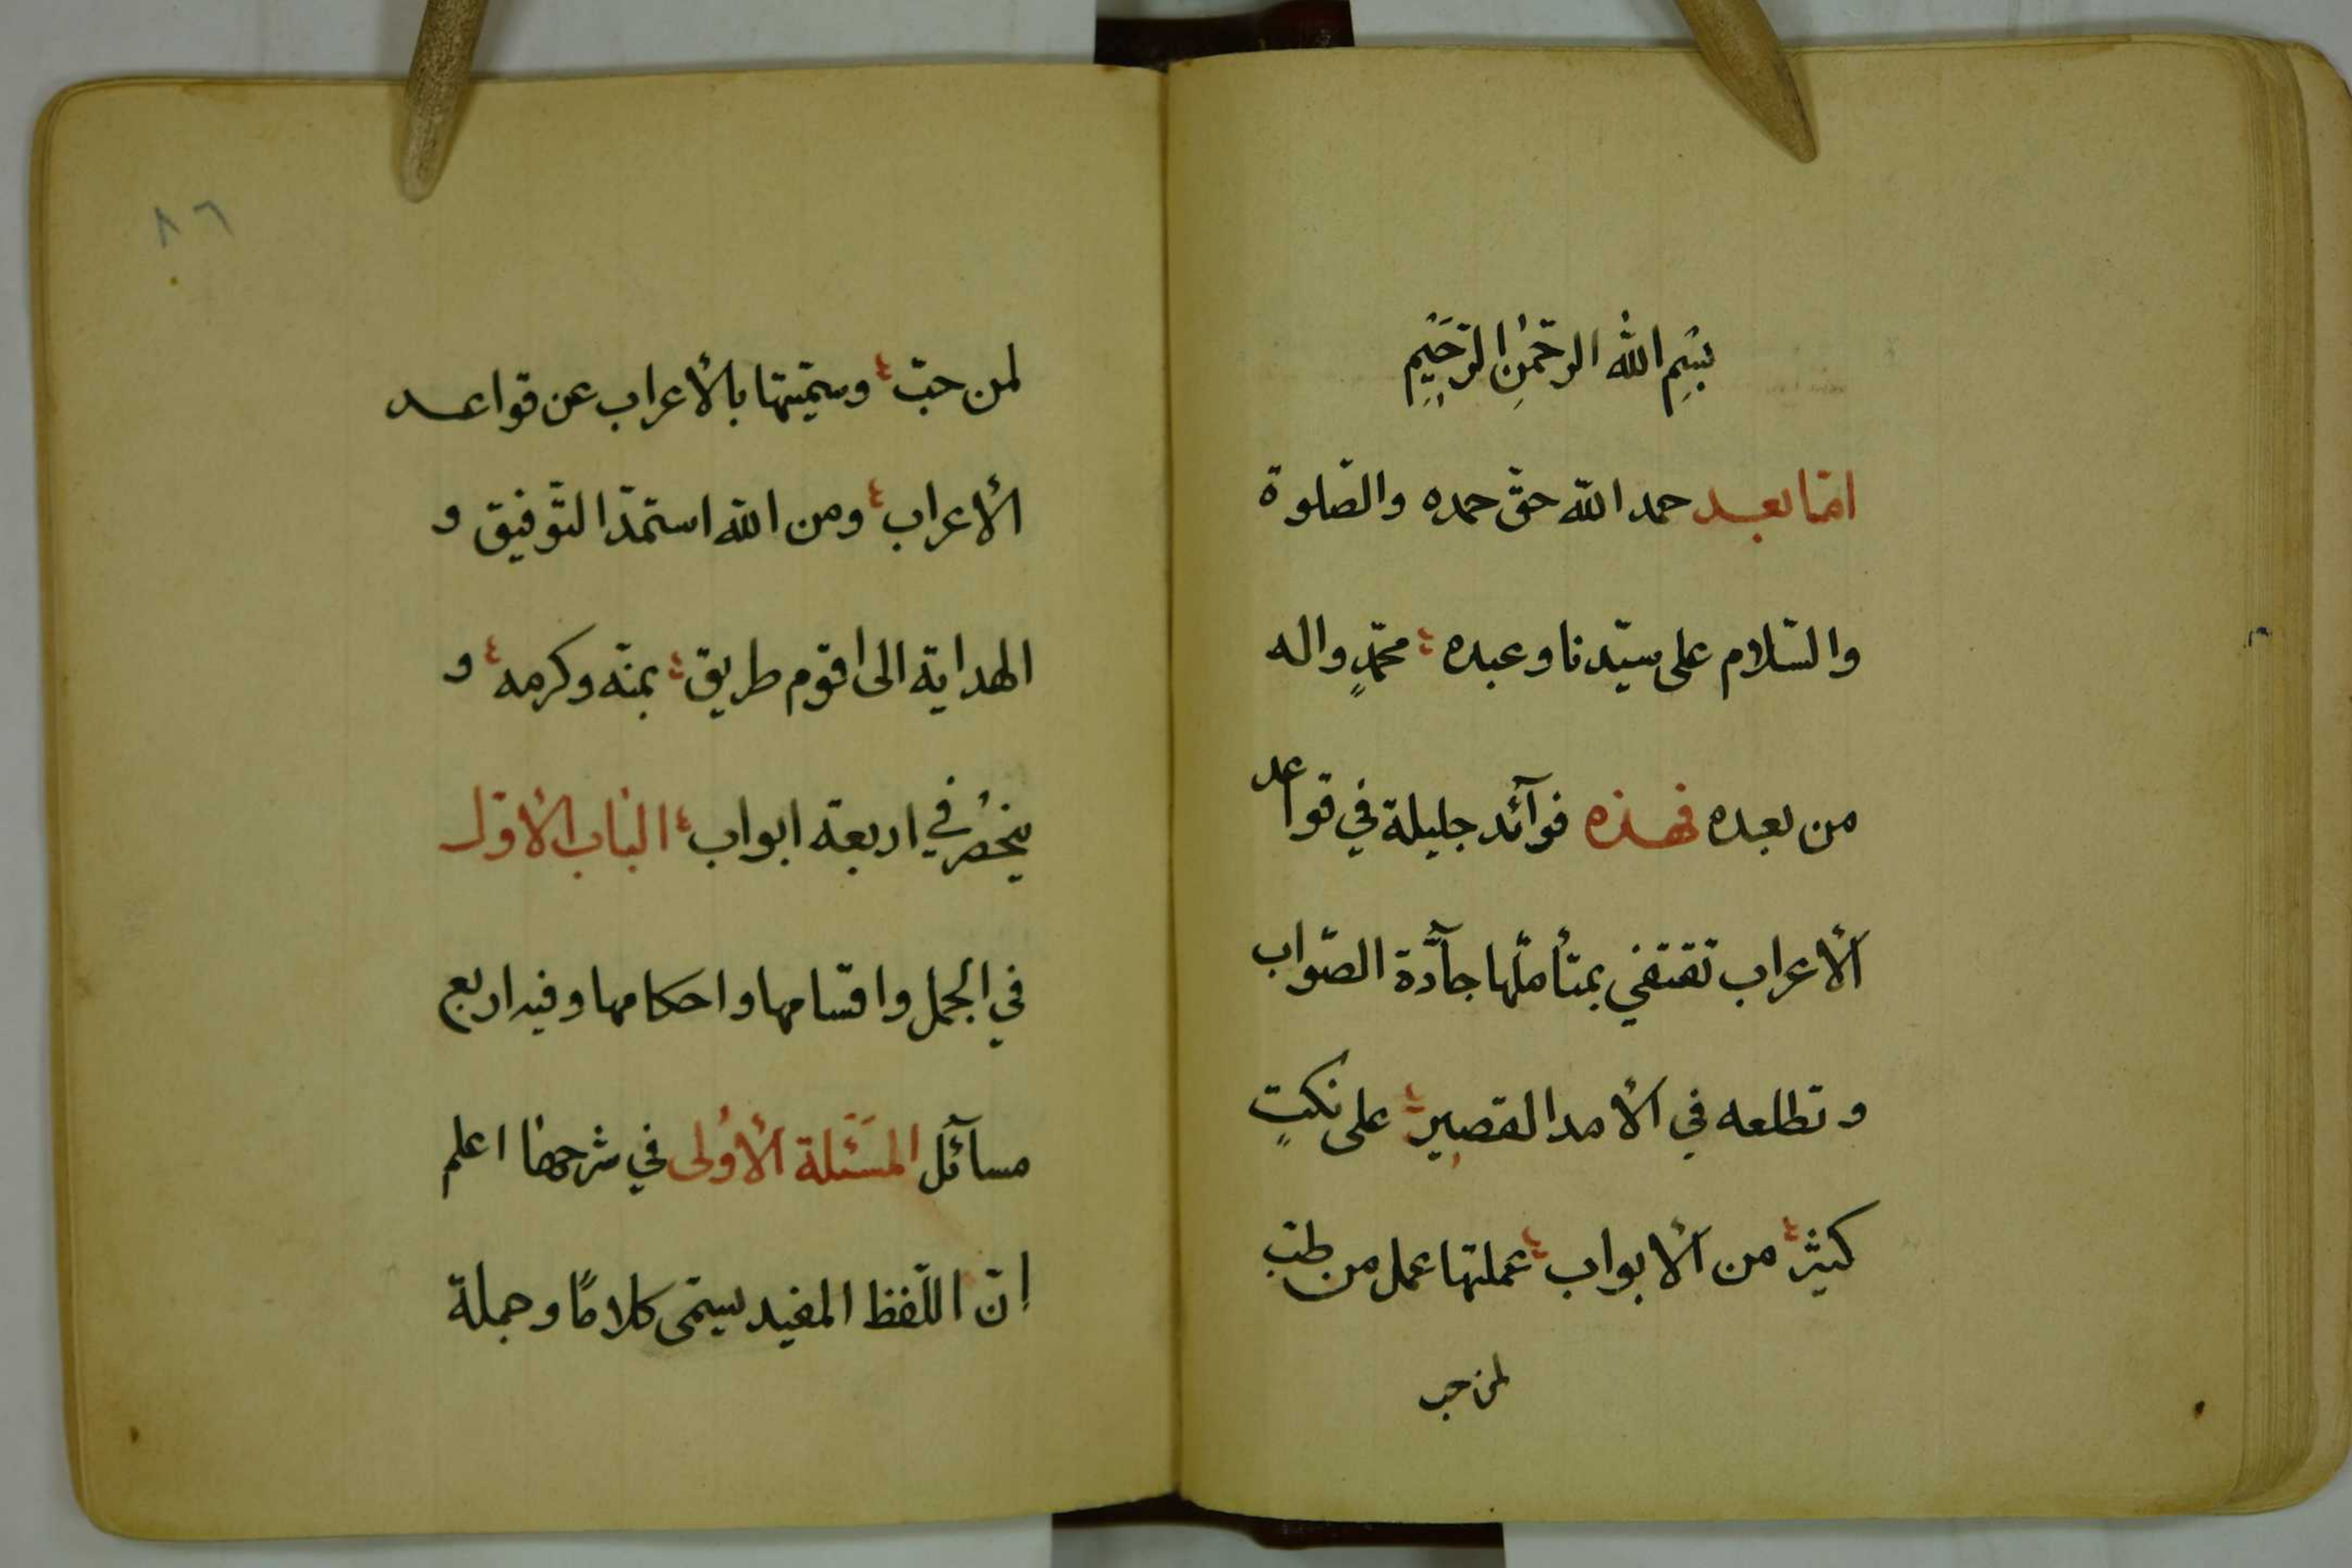 بِسْمِ اللّٰه الرّحْمٰنِ الرَّحَيْمِ
امّا بعد حمد اللّه حقّ حمده والصّلوة
والسّلام على سيّدنا وعبده محمّدٍ واله
من بعده فهذه فوآئد جليلة في قواعد
الأعراب تقتفي بمتأمّلها جآدّة الصّواب
وتطلعه في الأمد القصير على نكتٍ
كثيرٍ من الأبواب عملتها عمل من طبّ
لمن حب
٨٦
لمن حبّ وسمّيتها بالأعراب عن قواعد
الأعراب ومن اللّه استمدّ التّوفيق و
الهداية الى اقوم طريق بمنّه وكرمه و
ينحصُر في اربعة ابواب الباب الأوّل
في الجمل واقسامها واحكامها وفيه اربع
مسآئل المسَئلة الأُولى في شرحها اعلم
انّ اللّفظ المفيد يسمّى كلامًا وجملة